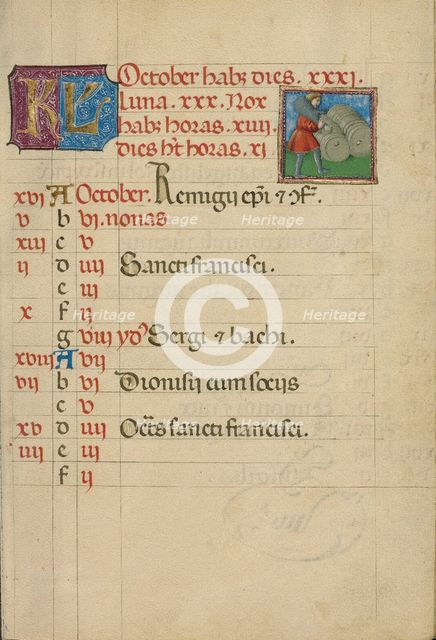 KL October habꝫ dies. xxxj.
Luna. xxx. Nox
habꝫ horas. xiij.
dies hꝫt horas. xj
xvj A October. Remigij ep̄i ⁊ ↄf̄.
v b vj. nonas
xiij c v
ij d iiij Sancti francisci.
e iij
x f ij
g viij ydꝰ Sergi ⁊ bachi.
xviij A vij
vij b vj Dionisij cum socijs
c v
xv d iiij Oct̄s sancti francisci.
iiij e iij
f ij
Heritage Heritage
Heritage Heritage Heritage
Heritage Heritage
C